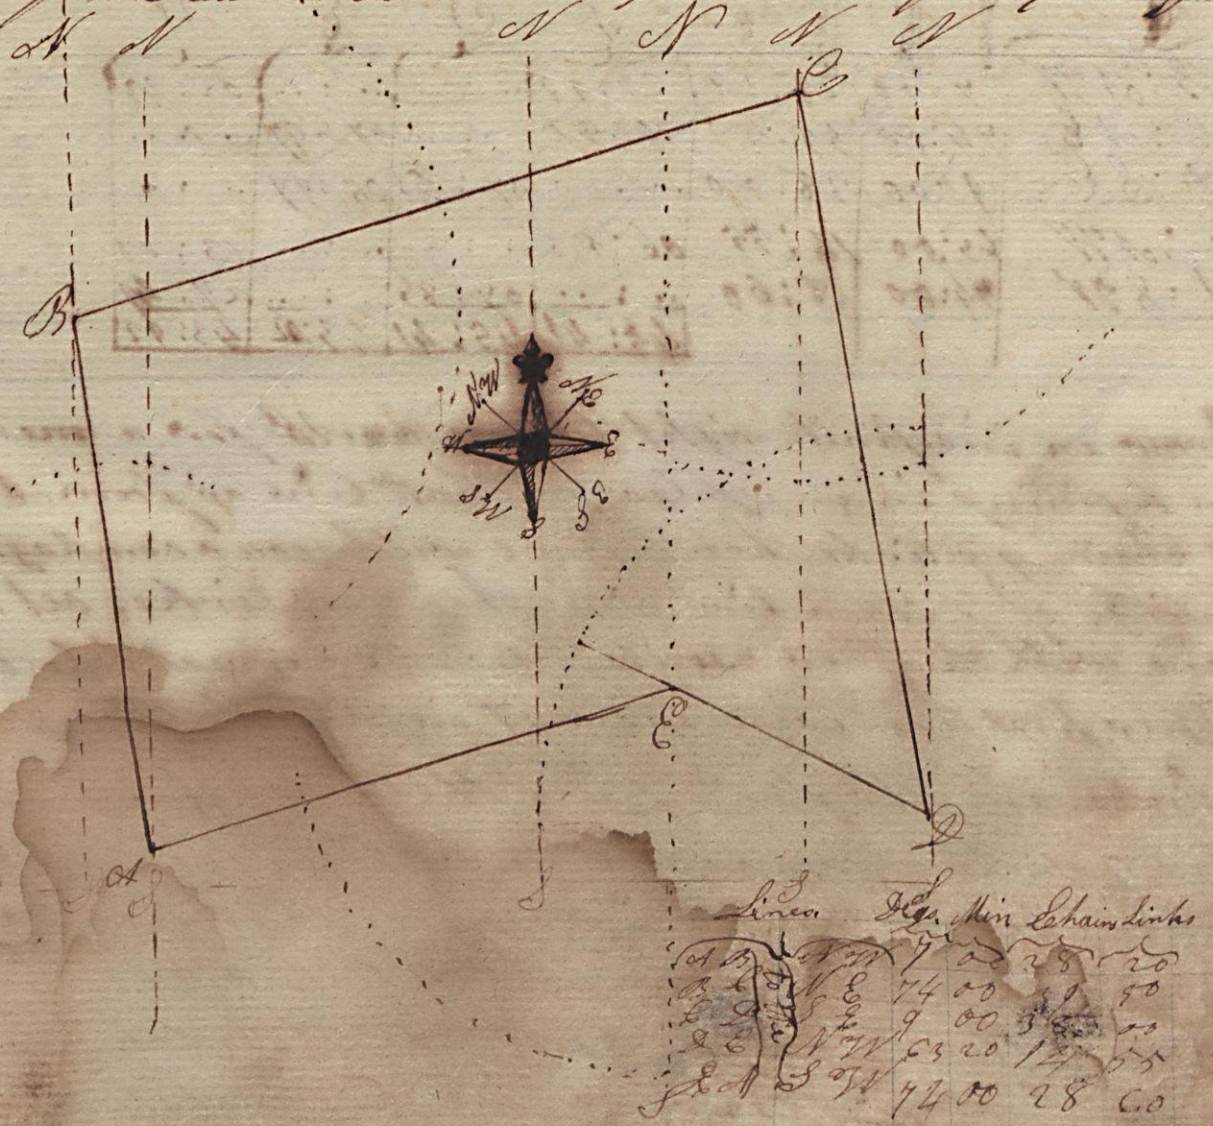 N N N N N N
C
B
N.W N E
W E
S W S E
S
E
D
A
S S S S S
Lines Degs. Min Chains Links
A B N W 7 00 28 20
B C to the N E 74 00 39 50
C D S E 9 00 38 00
D E N W 63 20 14 55
E A S W 74 00 28 60
S